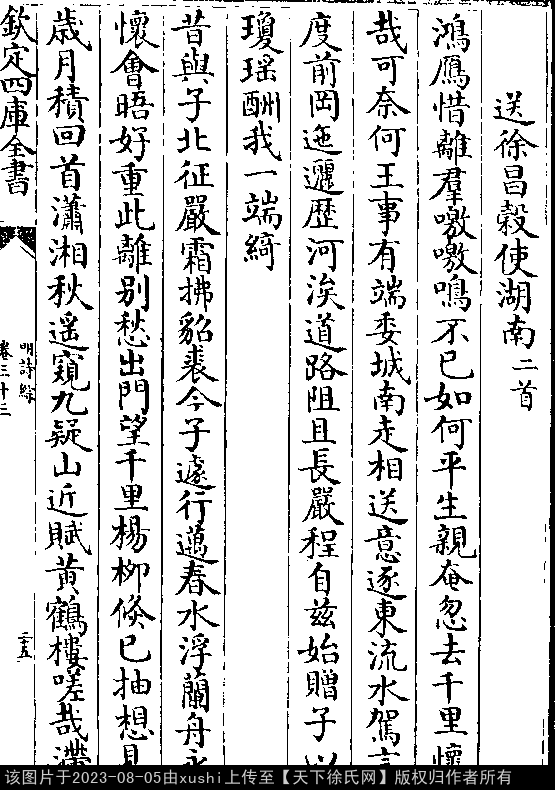 送徐昌穀使湖南二首
鴻鴈惜離羣噭噭鳴不已如何平生親奄忽去千里懷
哉可奈何王事有端委城南走相送意逐東流水駕言
度前岡迤邐歷河涘道路阻且長嚴程自兹始贈子以
瓊瑤酬我一端綺
昔與子北征嚴霜拂貂裘今子遽行邁春水浮蘭舟永
懷會晤好重此離别愁出門望千里楊柳倐已抽想見
歳月積回首瀟湘秋遥窺九疑山近賦黄鶴樓嗟哉滯
欽定四庫全書
明詩綜
卷三十三
二十五
该图片于2023-08-05由xushi上传至【天下徐氏网】版权归作者所有